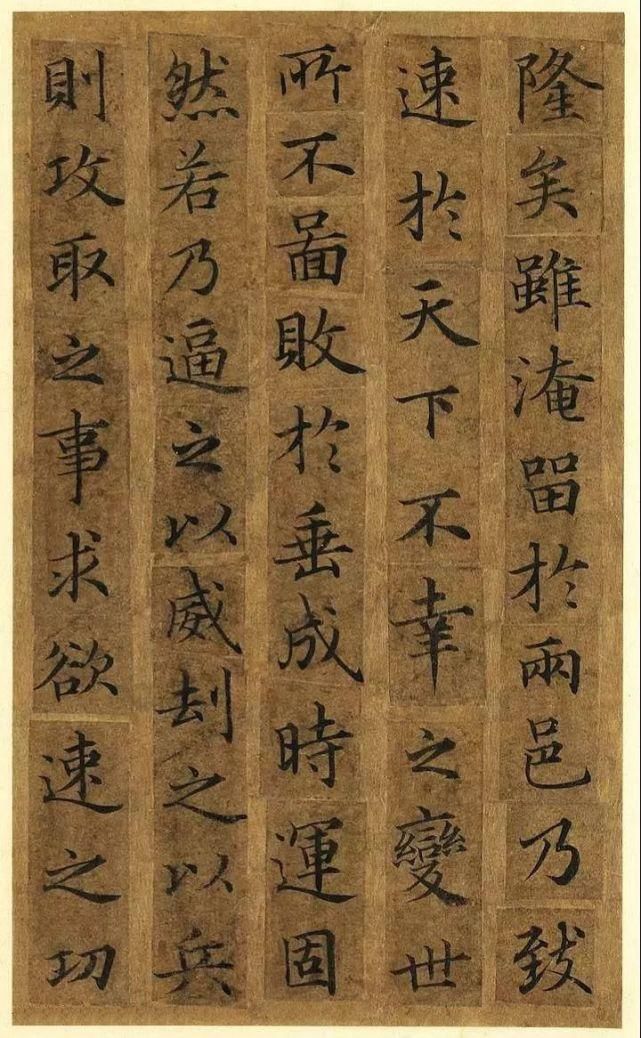 隆矣雖淹留於兩邑乃致
速於天下不幸之變世
所不圖敗於垂成時運固
然若乃逼之以威刧之以兵
則攻取之事求欲速之功